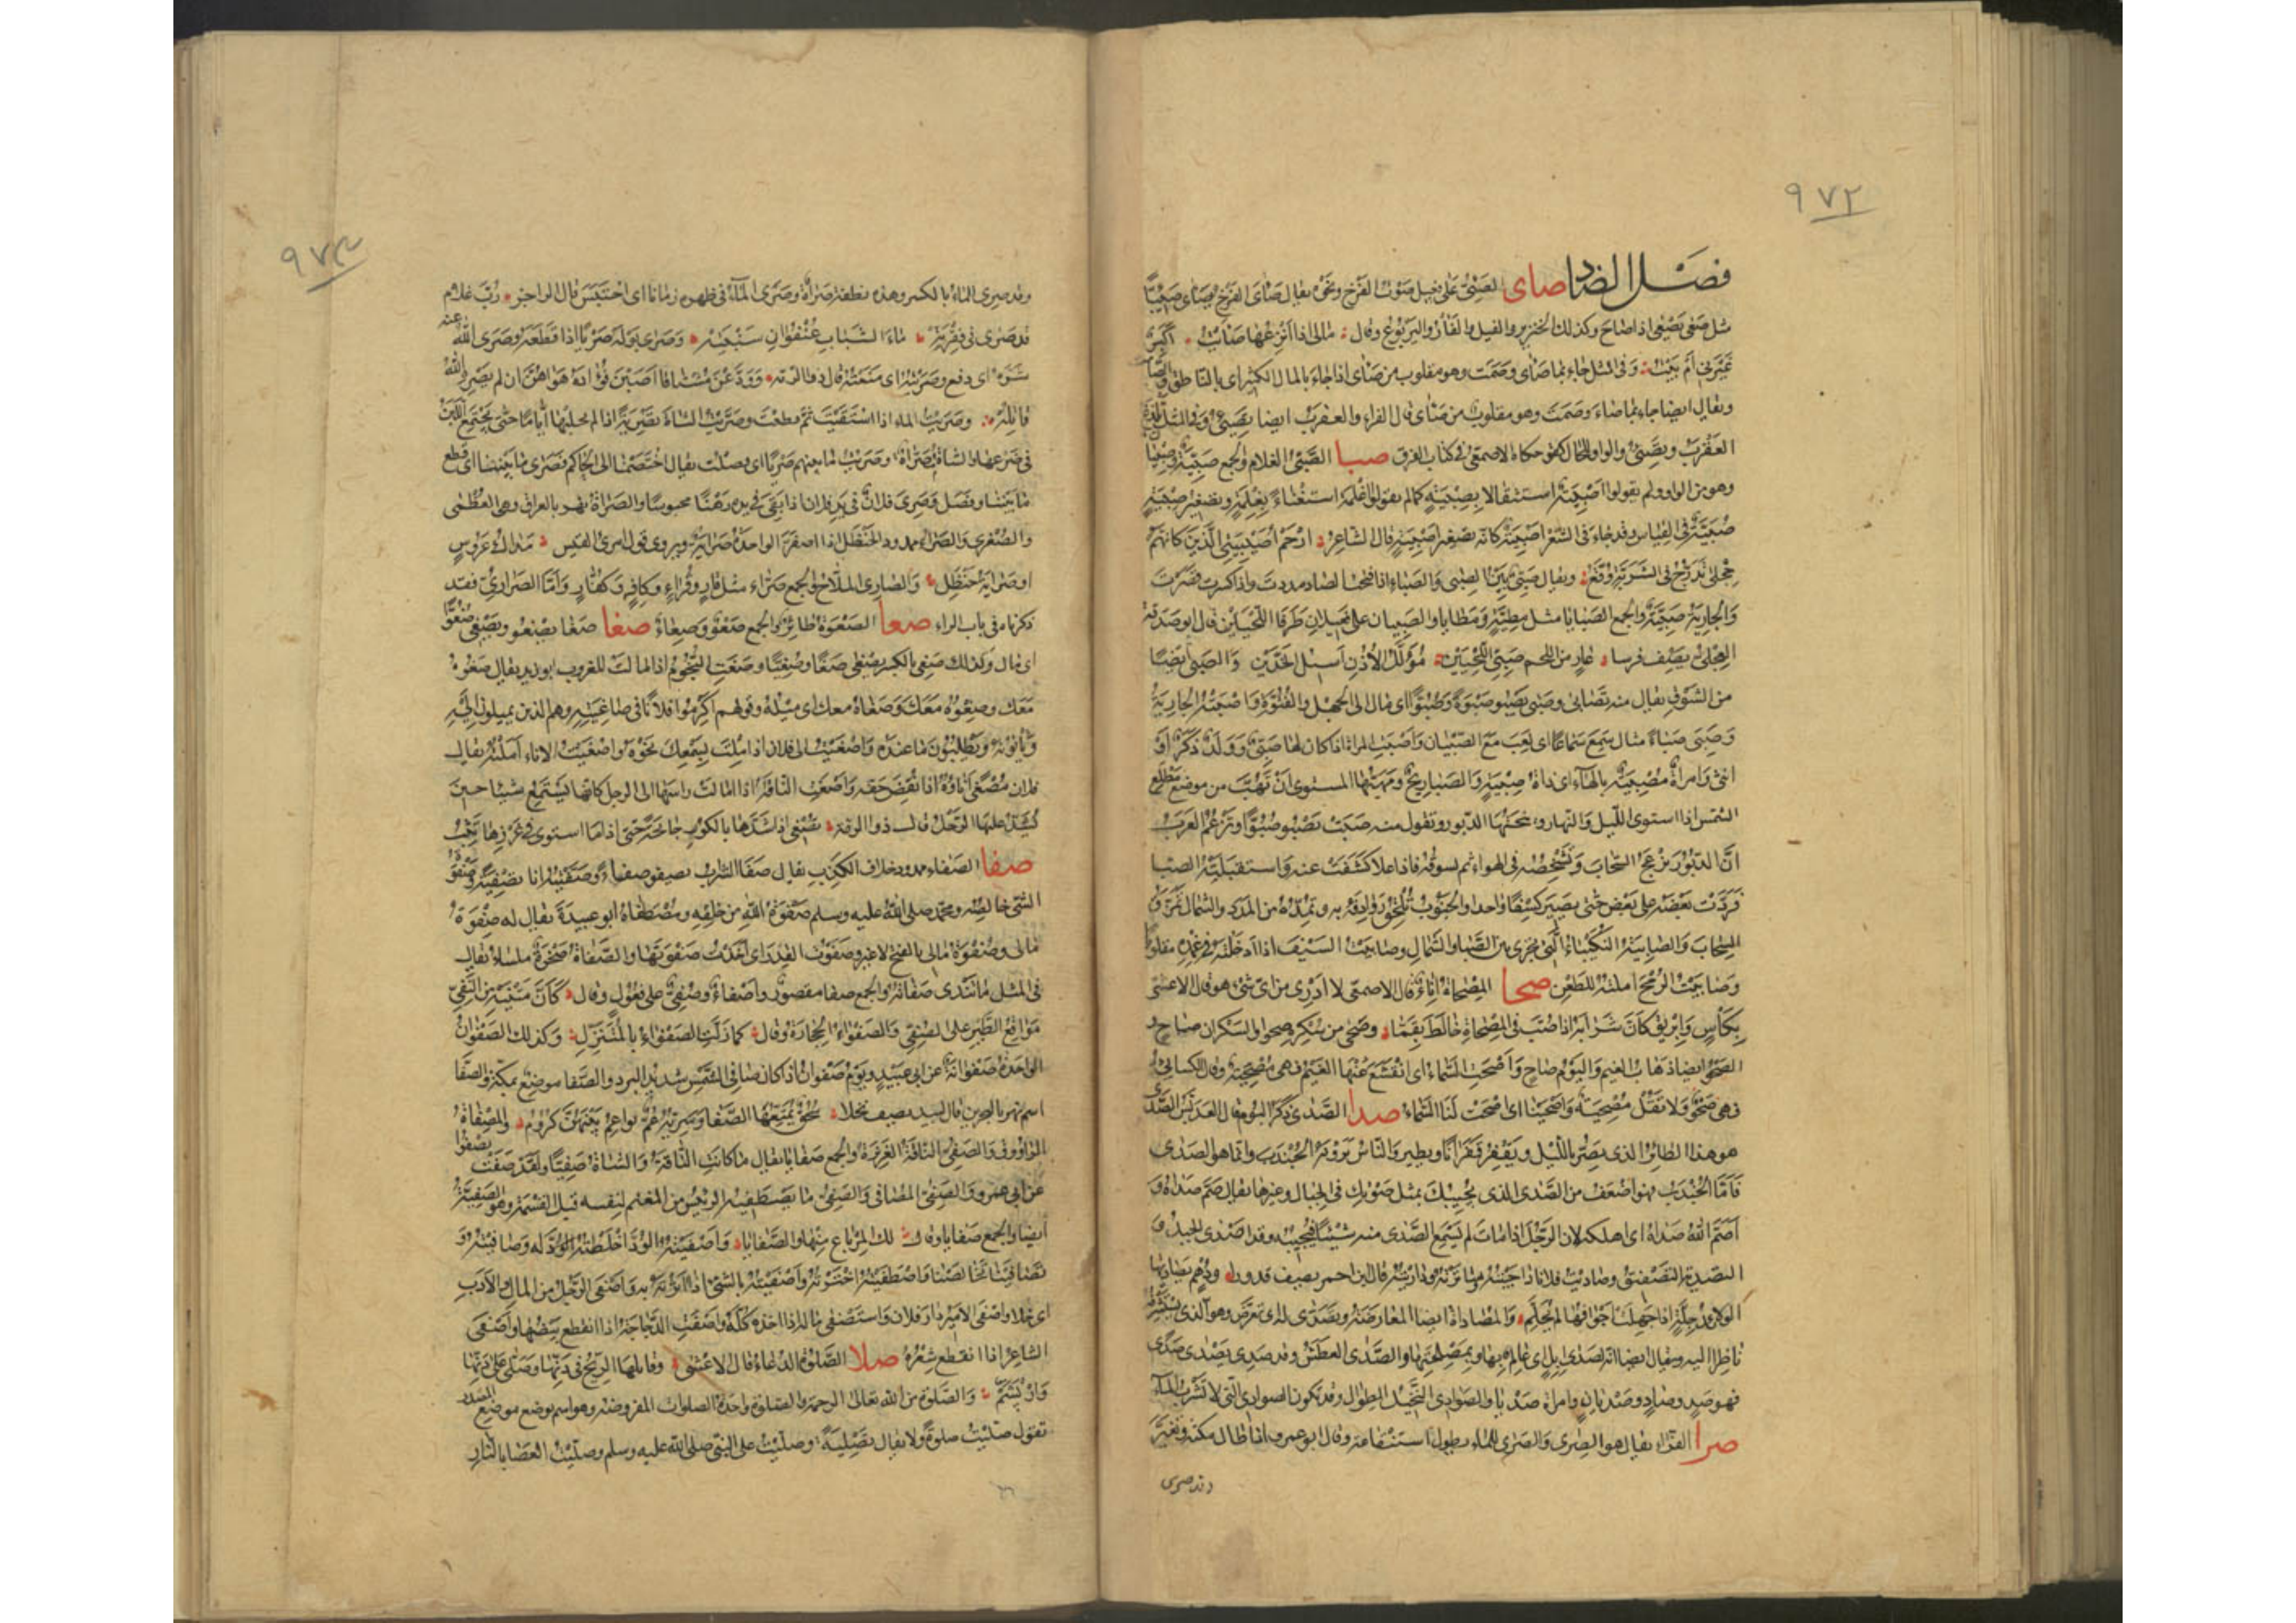 ٩٧٢
فصل الصاد صأى الصئي على فعيل صوت الفرخ ونحوه يقال صأى الفرخ يصأى صئيا
مثل صغى يصغى اذا صاح وكذلك الخنزير والفيل والفأر واليربوع وقال مالى اذا انزعها صأيت اكبر
غيرنى ام بيت وفى المثل جاء بما صأى وصمت وهو مقلوب من صأى اذا جاء بالمال الكثير اى بالناطق والصامت
ويقال ايضا جاء بما صاء وصمت وهو مقلوب من صأى قال الفراء والعقرب ايضا يصئى وفى المثل تلدغ
العقرب وتصئى والواو للحال حكاه الاصمعى فى كتاب الفرق صبا الصبى الغلام والجمع صبية وصبيان
وهو من الواو ولم يقولوا اصبية استغناء بصبية كما لم يقولوا اغلمة استغناء بغلمة وتصغير صبية
صبية فى القياس وقد جاء فى الشعر اصيبية كانه تصغير اصبية قال الشاعر ارحم اصيبيتى الذين كانهم
حجلى تدرج فى الشربة وقع ويقال صبى بين الصبى والصباء اذا فتحت الصاد مددت واذا كسرت قصرت
والجارية صبية والجمع الصبايا مثل مطية ومطايا والصبيان على فعيلان طرفا اللحيين قال ابو صدقة
العجلى يصف فرسا عار من اللحم صبيى اللحيين مؤلل الاذن اسيل الخدين والصبى ايضا
من الشوق يقال منه تصابى وصبى يصبو صبوة وصبوا اى مال الى الجهل والفتوة واصبته الجارية
وصبى صباء مثال سمع سماعا اى لعب مع الصبيان واصبت المراة اذا كان لها صبى وولد ذكر او
انثى وامراة مصبية بالهاء اى ذات صبية والصبا ريح ومهبها المستوى ان تهب من موضع مطلع
الشمس اذا استوى الليل والنهار ونيحتها الدبور وتقول منه صبت تصبو صبوا وتزعم العرب
ان الدبور تزعج السحاب وتشخصه فى الهواء ثم تسوقه فاذا علا كشفت عنه واستقبلته الصبا
فردت بعضه على بعض حتى يصير كسفا واحدا والجنوب تلحق روادفه به وتمده من المدد والشمال تمزق
السحاب والصابية النكيباء التى تجرى بين الصبا والشمال وصابيت السيف اذا ادخلته فى غمده مقلوبا
وصابيت الرمح املته للطعن صحا المصحاة اناء قال الاصمعى لا ادرى من اى شئ هو قال الاعشى
بكأس وابريق كأن شرابه اذا صب فى المصحاة خالط بقما وصحى من سكره صحوا والسكران صاح و
الصحو ايضا ذهاب الغيم واليوم صاح واصحت السماء اى انقشع عنها الغيم فهى مصحية وقال الكسائى
فهى صحو ولا تقل مصحية واصحينا اى اصحت لنا السماء صدا الصدى ذكر البوم قال العدبس الصدى
هو هذا الطائر الذى يصر بالليل ويقفز قفزانا ويطير والناس يرونه الجندب وانما هو الصدى
فاما الجندب فهو اضعف من الصدى الذى يجيبك بمثل صوتك فى الجبال وغيرها يقال صم صداه و
اصم الله صداه اى اهلكه لان الرجل اذا مات لم يسمع الصدى منه شيئا فيجيبه وقد اصدى الجبل و
التصدية التصفيق وصاديت فلانا اذا جيته وساترته وداريته قال ابن احمر يصف قدورا ودهم تصاديها
الولائد جلة اذا جهلت اجوافها لم تحلم والمصاداة ايضا المعارضة وتصدى له اى تعرض وهو الذى يستشرفه
ناظرا اليه ويقال ايضا انه لصدى ابل اى عالم بها وبمصلحتها والصدى العطش وقد صدى يصدى صدى
فهو صد وصاد وصديان وامراة صديا والصوادى النخيل الطوال وقد تكون الصوادى التى لا تشرب الماء
صرا الفراء يقال هو الصرى والصرى للماء يطول استنقاعه وقال ابو عمرو اذا طال مكثه وتغير
وقد صرى
٩٧٣
وقد صرى الماء بالكسر وهذه نطفة صراة وصرى الماء فى ظهره زمانا اى احتبس قال الراجز رب غلام
قد صرى فى فقرته ماء الشباب عنفوان سنبته وصرى بوله صريا اذا قطعه وصرى الله عنه
شره اى دفع وصريته اى منعته قال ذو الرمة وودعن مشتاقا اصبن فؤاده هواهن ان لم يصره الله
قاتله وصريت الماء اذا استقيت ثم قطعت وصريت الشاة تصرية اذا لم تحلبها اياما حتى يجتمع اللبن
فى ضرعها والشاة مصراة وصريت ما بينهم صريا اى فصلت يقال اختصمنا الى الحاكم فصرى ما بيننا اى قطع
ما بيننا وفصل وصرى فلان فى يد فلان اذا بقى فى يده رهنا محبوسا والصراة نهر بالعراق وهى العظمى
والصغرى والصراء ممدود الحنظل اذا اصفر الواحدة صراية ويروى قول امرئ القيس مداك عروس
او صراية حنظل والصارى الملاح والجمع صراء مثل قار وقراء وكافر وكفار واما الصرارى فقد
ذكرناه فى باب الراء صعا الصعوة طائر والجمع صعو وصعاء صغا صغا يصغو ويصغى صغوا
اى مال وكذلك صغى بالكسر يصغى صغا وصغيا وصغت النجوم اذا مالت للغروب ابو زيد يقال صغوه
معك وصغوه معك وصغاه معك اى ميله وقولهم اكرموا فلانا فى صاغيته وهم الذين يميلون اليه
ويأتونه ويطلبون ما عنده واصغيت الى فلان اذا ملت بسمعك نحوه واصغيت الاناء املته يقال
فلان مصغى اناؤه اذا نقص حقه واصغت الناقة اذا امالت راسها الى الرجل كانها تستمع شيئا حين
يشد عليها الرحل قال ذو الرمة تصغى اذا شدها بالكور جانحة حتى اذا ما استوى فى غرزها تثب
صفا الصفاء ممدود خلاف الكدر يقال صفا الشراب يصفو صفاء وصفيته انا تصفية وصفوة
الشئ خالصه ومحمد صلى الله عليه وسلم صفوة الله من خلقه ومصطفاه ابو عبيدة يقال له صفوة
مالى وصفوة مالى بالفتح لا غير وصفوت القدر اى اخذت صفوتها والصفاة صخرة ملساء يقال
فى المثل ما تندى صفاته والجمع صفا مقصور واصفاء وصفى على فعول وقال كأن متنيه من النفى
مواقع الطير على الصفى والصفواء الحجارة وقال كما زلت الصفواء بالمتنزل وكذلك الصفوان
الواحدة صفوانة عن ابى عبيد ويوم صفوان اذا كان صافى الشمس شديد البرد والصفا موضع بمكة والصفا
اسم نهر بالبحرين قال لبيد يصف نخلا سحق يمتعها الصفا وسريه عم نواعم بينهن كروم والمصفاة
الراووق والصفى الناقة الغزيرة والجمع صفايا يقال ما كانت الناقة والشاة صفيا ولقد صفت تصفو
عن ابى عمرو والصفى المصافى والصفى ما يصطفيه الرئيس من المغنم لنفسه قبل القسمة وهو الصفية
ايضا والجمع صفايا وقال لك المرباع منها والصفايا واصفيته الود اخلصته له وصافيته و
تصافينا تخالصنا واصطفيته اخترته واصفيته بالشئ اذا آثرته به واصفى الرجل من المال والادب
اى خلا واصفى الامير دار فلان واستصفى ماله اذا اخذه كله واصفت الدجاجة اذا انقطع بيضها واصفى
الشاعر اذا انقطع شعره صلا الصلوة الدعاء قال الاعشى وقابلها الريح فى دنها وصلى على دنها
وارتسم والصلوة من الله تعالى الرحمة والصلوة واحدة الصلوات المفروضة وهو اسم يوضع موضع المصدر
تقول صليت صلوة ولا يقال تصلية وصليت على النبى صلى الله عليه وسلم وصليت العصا بالنار